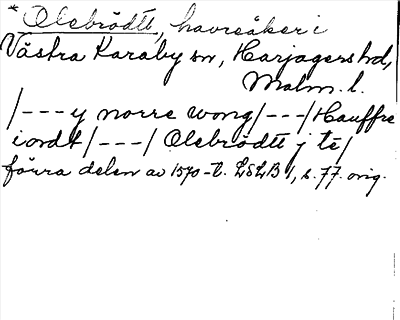 * Olebrödtt, havreåker i
Västra Karaby sn, Harjagers hd,
Malm. l.
/---y norre wong/---/Hauffre
iordt/---/ Olebrödtt j te/
förra delen av 1570-t. LSLB 1, s. 77. orig.